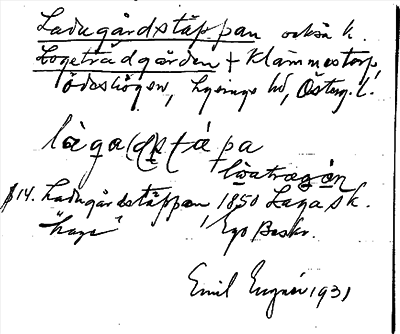 Ladugårdstäppan också k.
Logeträdgården + Klämmestorp,
Ödeshögen, Lysings hd, Österg. l.
làga(d)stápa
löatragån
14. Ladugårdstäppan 1850 Laga sk.
"haga", Ego Beskr.
Emil 1931